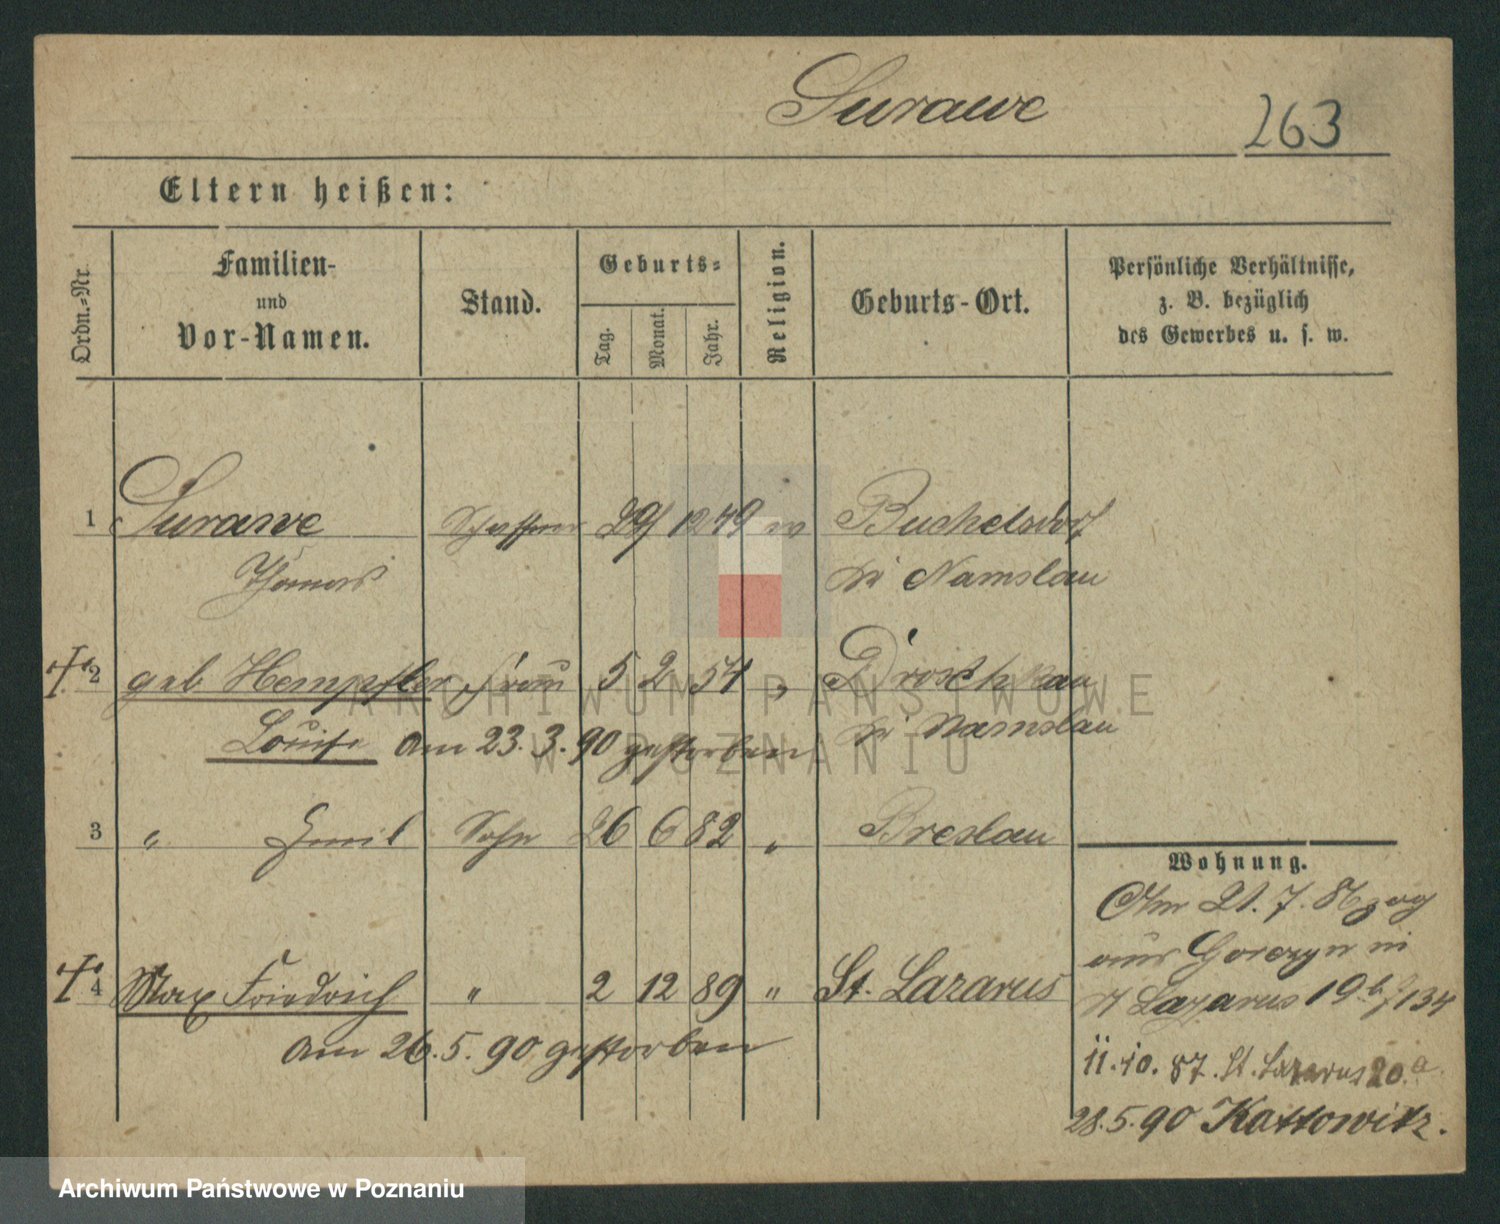 Surawe
263
Eltern heißen:
Ordn.-Nr.
Familien-
und
Vor-Namen.
Stand.
Geburts-
Tag.
Monat.
Jahr.
Religion.
Geburts-Ort.
Persönliche Verhältnisse,
z. B. bezüglich
des Gewerbes u. s. w.
1 Surawe Schaffner 29/ 12 49 Buchelsdorf
Thomas bei Namslau
2 geb Hempfler Frau 5 2 54 " Droschkau
Louise am 23. 3. 90 gestorben bei Namslau
3 " Emil Sohn 26 6 82 " Breslau
Wohnung.
Am 21. 7. 86 zog
aus Gorczyn in
St Lazarus 19b 134
4 Max Friedrich " 2 12 89 " St. Lazarus
am 26. 5. 90 gestorben
11. 10. 87. St. Lazarus 20.a
28. 5. 90 Kattowitz.
ARCHIWUM PAŃSTWOWE
W POZNANIU
Archiwum Państwowe w Poznaniu